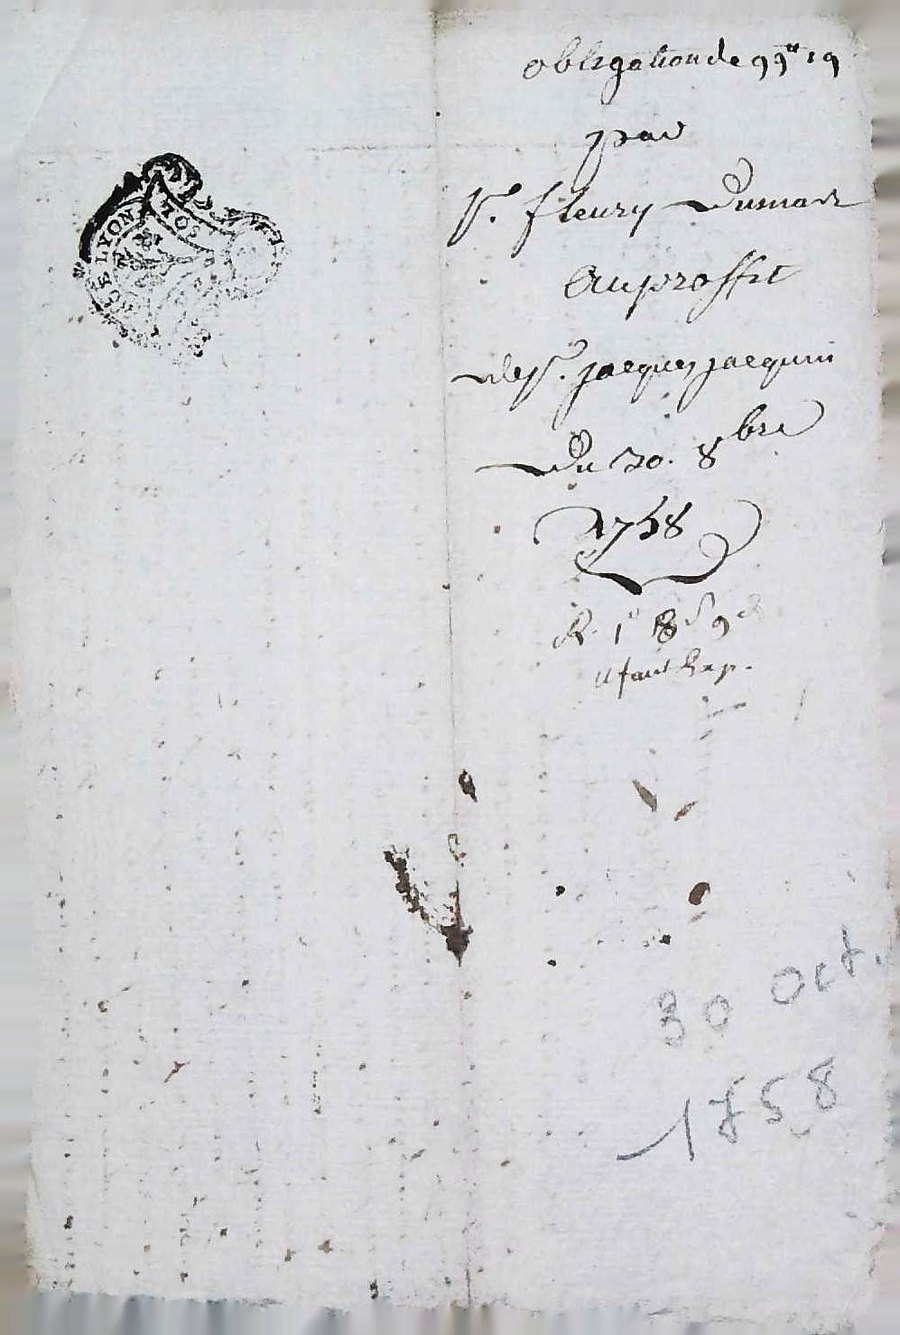 LYON
obligation de 99ᵗᵗ 19
par
Sr. fleury Dumas
Au proffit
de Sr. jacques jacquin
Du 30. 8bre
1758
R. 1ᵗᵗ 8s 9d
il faut Exp.
30 oct.
1758